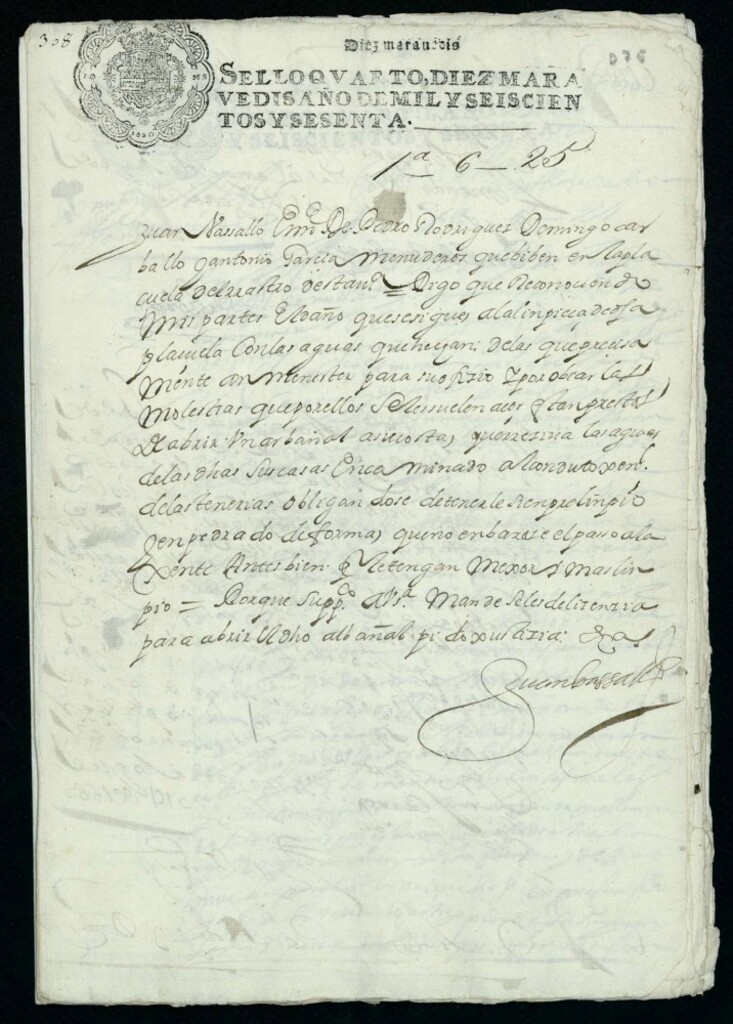 308
Diez marauedis
076
SELLO QVARTO, DIEZ MARA
VEDIS AÑO DE MIL Y SEISCIEN
TOS Y SESENTA.
1ª 6 — 25
Juan Vassallo En nᵉ De Pedro Rodriguez Domingo car
ballo y antonio Garcia menuderos que biben en la pla
cuela del Rastro desta = Digo que Reconociendo
Mis partes El daño que se sigue a la linpieça de dha
plaçuela Con las aguas que hechan de las que precisa
mente an menester para su ofizio y por obiar las
Molestias que por ellos se les suelen acer estan prestos
De abrir Un arbañal a su costa, que reziva las aguas
de las dhas sus casas Encaminado al conduto
de las tenerias obligandose de tenerle sienpre linpio
y enpedrado de forma, que no enbaraze el paso a la
xente Antes bien le tengan Mexor y mas lin
pio = Por que Suppᶜᵒ a Vsª. Mande se les de lizenzia
para abrir el dho albañal pido xustizia: &ª
Juan bassallo